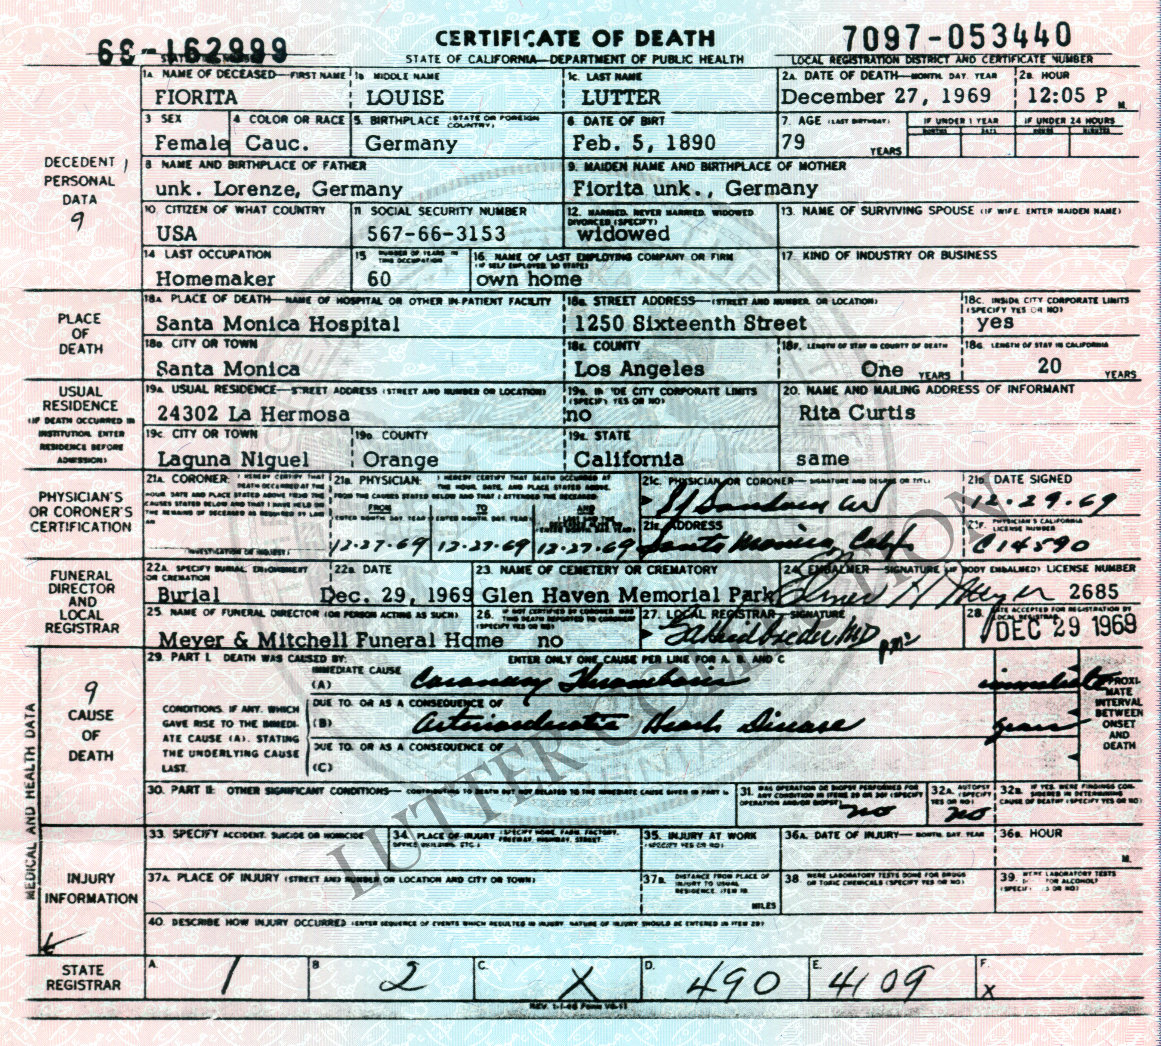 CERTIFICATE OF DEATH
7097-053440
STATE OF CALIFORNIA—DEPARTMENT OF PUBLIC HEALTH
LOCAL REGISTRATION DISTRICT AND CERTIFICATE NUMBER
1A. NAME OF DECEASED—FIRST NAME 1B. MIDDLE NAME 1C. LAST NAME 2A. DATE OF DEATH—MONTH, DAY, YEAR 2B. HOUR
FIORITA LOUISE LUTTER December 27, 1969 12:05 P M.
3. SEX 4. COLOR OR RACE 5. BIRTHPLACE (STATE OR FOREIGN COUNTRY) 6. DATE OF BIRTH 7. AGE (LAST BIRTHDAY) IF UNDER 1 YEAR IF UNDER 24 HOURS
Female Cauc. Germany Feb. 5, 1890 79 YEARS
DECEDENT PERSONAL DATA
9
8. NAME AND BIRTHPLACE OF FATHER 9. MAIDEN NAME AND BIRTHPLACE OF MOTHER
unk. Lorenze, Germany Fiorita unk., Germany
10. CITIZEN OF WHAT COUNTRY 11. SOCIAL SECURITY NUMBER 12. MARRIED, NEVER MARRIED, WIDOWED, DIVORCED (SPECIFY) 13. NAME OF SURVIVING SPOUSE (IF WIFE, ENTER MAIDEN NAME)
USA 567-66-3153 widowed
14. LAST OCCUPATION 15. NUMBER OF YEARS IN THIS OCCUPATION 16. NAME OF LAST EMPLOYING COMPANY OR FIRM (IF SELF EMPLOYED, SO STATE) 17. KIND OF INDUSTRY OR BUSINESS
Homemaker 60 own home
PLACE OF DEATH
18A. PLACE OF DEATH—NAME OF HOSPITAL OR OTHER IN-PATIENT FACILITY 18B. STREET ADDRESS—(STREET AND NUMBER, OR LOCATION) 18C. INSIDE CITY CORPORATE LIMITS (SPECIFY YES OR NO)
Santa Monica Hospital 1250 Sixteenth Street yes
18D. CITY OR TOWN 18E. COUNTY 18F. LENGTH OF STAY IN COUNTY OF DEATH 18G. LENGTH OF STAY IN CALIFORNIA
Santa Monica Los Angeles One YEARS 20 YEARS
USUAL RESIDENCE
(IF DEATH OCCURRED IN INSTITUTION, ENTER RESIDENCE BEFORE ADMISSION)
19A. USUAL RESIDENCE—STREET ADDRESS (STREET AND NUMBER OR LOCATION) CITY CORPORATE LIMITS (SPECIFY YES OR NO) 20. NAME AND MAILING ADDRESS OF INFORMANT
24302 La Hermosa no Rita Curtis
19C. CITY OR TOWN 19D. COUNTY 19E. STATE
Laguna Niguel Orange California same
PHYSICIAN'S OR CORONER'S CERTIFICATION
21A. CORONER: 21B. PHYSICIAN: I HEREBY CERTIFY THAT DEATH OCCURRED AT THE HOUR, DATE AND PLACE STATED ABOVE FROM THE CAUSES STATED BELOW AND THAT I ATTENDED THE DECEASED 21C. PHYSICIAN OR CORONER—SIGNATURE AND DEGREE OR TITLE 21D. DATE SIGNED
12-29-69
FROM TO AND 21E. ADDRESS 21F. PHYSICIAN'S CALIFORNIA LICENSE NUMBER
12-27-69 12-27-69 12-27-69 Santa Monica, Calif C14590
FUNERAL DIRECTOR AND LOCAL REGISTRAR
22A. SPECIFY BURIAL, ENTOMBMENT OR CREMATION 22B. DATE 23. NAME OF CEMETERY OR CREMATORY 24. EMBALMER—SIGNATURE (IF BODY EMBALMED) LICENSE NUMBER
Burial Dec. 29, 1969 Glen Haven Memorial Park 2685
25. NAME OF FUNERAL DIRECTOR (OR PERSON ACTING AS SUCH) 26. 27. LOCAL REGISTRAR—SIGNATURE 28. DATE ACCEPTED FOR REGISTRATION BY LOCAL REGISTRAR
Meyer & Mitchell Funeral Home no DEC 29 1969
MEDICAL AND HEALTH DATA
9
CAUSE OF DEATH
29. PART I. DEATH WAS CAUSED BY: ENTER ONLY ONE CAUSE PER LINE FOR A, B, AND C
IMMEDIATE CAUSE
(A) Coronary Thrombosis immediate
CONDITIONS, IF ANY, WHICH GAVE RISE TO THE IMMEDIATE CAUSE (A), STATING THE UNDERLYING CAUSE LAST.
DUE TO, OR AS A CONSEQUENCE OF
(B) Arteriosclerotic Heart Disease years
DUE TO, OR AS A CONSEQUENCE OF
(C)
APPROXIMATE INTERVAL BETWEEN ONSET AND DEATH
30. PART II: OTHER SIGNIFICANT CONDITIONS— 31. 32A. AUTOPSY (SPECIFY YES OR NO) 32B.
no no
INJURY INFORMATION
33. SPECIFY ACCIDENT, SUICIDE OR HOMICIDE 34. PLACE OF INJURY 35. INJURY AT WORK (SPECIFY YES OR NO) 36A. DATE OF INJURY—MONTH, DAY, YEAR 36B. HOUR
M.
37A. PLACE OF INJURY (STREET AND NUMBER OR LOCATION AND CITY OR TOWN) 37B. DISTANCE FROM PLACE OF INJURY TO USUAL RESIDENCE, ITEM 19. MILES 38. WERE LABORATORY TESTS DONE FOR DRUGS OR TOXIC CHEMICALS (SPECIFY YES OR NO) 39.
40. DESCRIBE HOW INJURY OCCURRED (ENTER SEQUENCE OF EVENTS WHICH RESULTED IN INJURY. NATURE OF INJURY SHOULD BE ENTERED IN ITEM 29)
STATE REGISTRAR
A. 1 B. 2 C. X D. 490 E. 4109 F. X
LUTTER COLLECTION